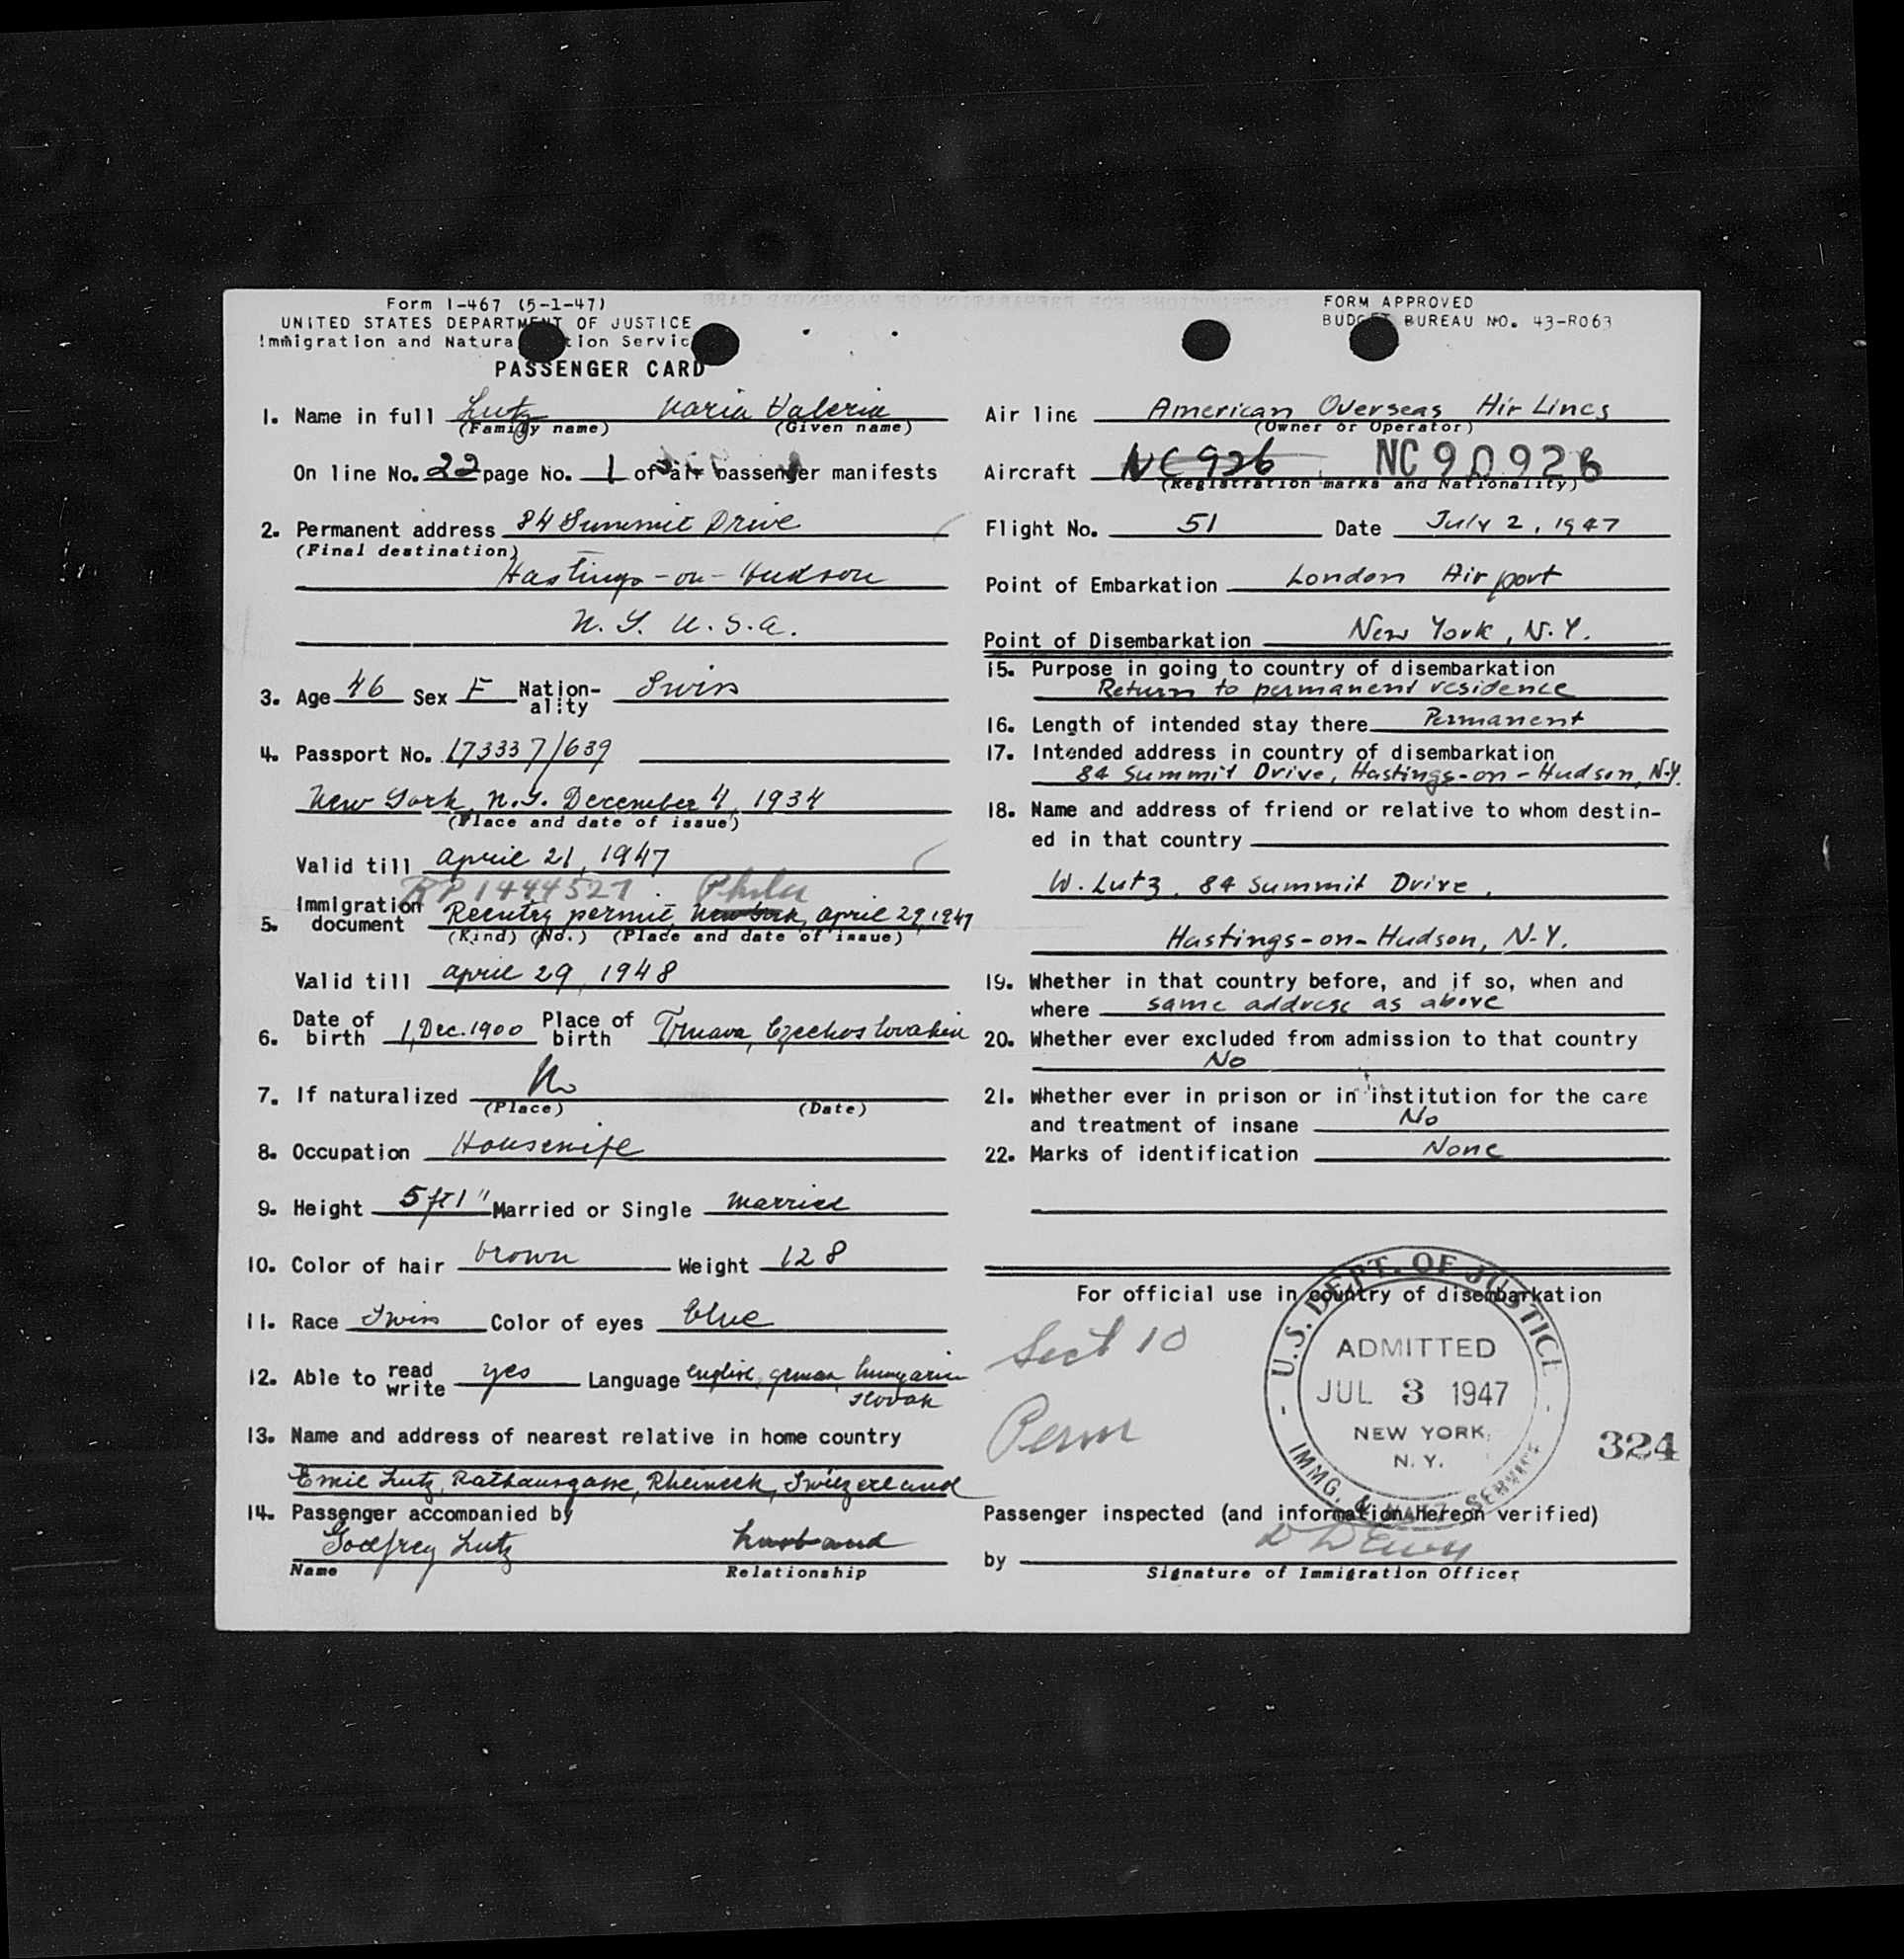 Form I-467 (5-1-47)
UNITED STATES DEPARTMENT OF JUSTICE
Immigration and Natura tion Servic
PASSENGER CARD
1. Name in full Lutz Maria Valeria
(Family name) (Given name)
On line No. 22 page No. 1 of air passenger manifests
2. Permanent address 84 Summit Drive
(Final destination)
Hastings-on-Hudson
N.Y. U.S.A.
3. Age 46 Sex F Nation-ality Swiss
4. Passport No. 173337/639
New York, N.Y. December 4, 1934
(Place and date of issue)
Valid till April 21, 1947
RP 1444527 Phila
5. Immigration document Reentry permit, New York, April 29, 1947
(Kind) (No.) (Place and date of issue)
Valid till April 29, 1948
6. Date of birth 1, Dec. 1900 Place of birth Trnava, Czechoslovakia
7. If naturalized No
(Place) (Date)
8. Occupation Housewife
9. Height 5 ft 1" Married or Single married
10. Color of hair brown Weight 128
11. Race Swiss Color of eyes blue
12. Able to read write yes Language english, german, hungarian
slovak
13. Name and address of nearest relative in home country
Emil Lutz, Rathausgasse, Rheineck, Switzerland
14. Passenger accompanied by
Godfrey Lutz husband
Name Relationship
FORM APPROVED
BUDGET BUREAU NO. 43-R063
Air line American Overseas Air Lines
(Owner or Operator)
Aircraft NC 926 NC90926
(Registration marks and Nationality)
Flight No. 51 Date July 2, 1947
Point of Embarkation London Airport
Point of Disembarkation New York, N.Y.
15. Purpose in going to country of disembarkation
Return to permanent residence
16. Length of intended stay there Permanent
17. Intended address in country of disembarkation
84 Summit Drive, Hastings-on-Hudson, N.Y.
18. Name and address of friend or relative to whom destin-
ed in that country
W. Lutz, 84 Summit Drive,
Hastings-on-Hudson, N.Y.
19. Whether in that country before, and if so, when and
where same address as above
20. Whether ever excluded from admission to that country
No
21. Whether ever in prison or in institution for the care
and treatment of insane No
22. Marks of identification None
For official use in country of disembarkation
Sect 10
Perm
U.S. DEPT. OF JUSTICE
ADMITTED
JUL 3 1947
NEW YORK,
N.Y.
IMMG. & NATZ. SERVICE
324
Passenger inspected (and information hereon verified)
by
Signature of Immigration Officer